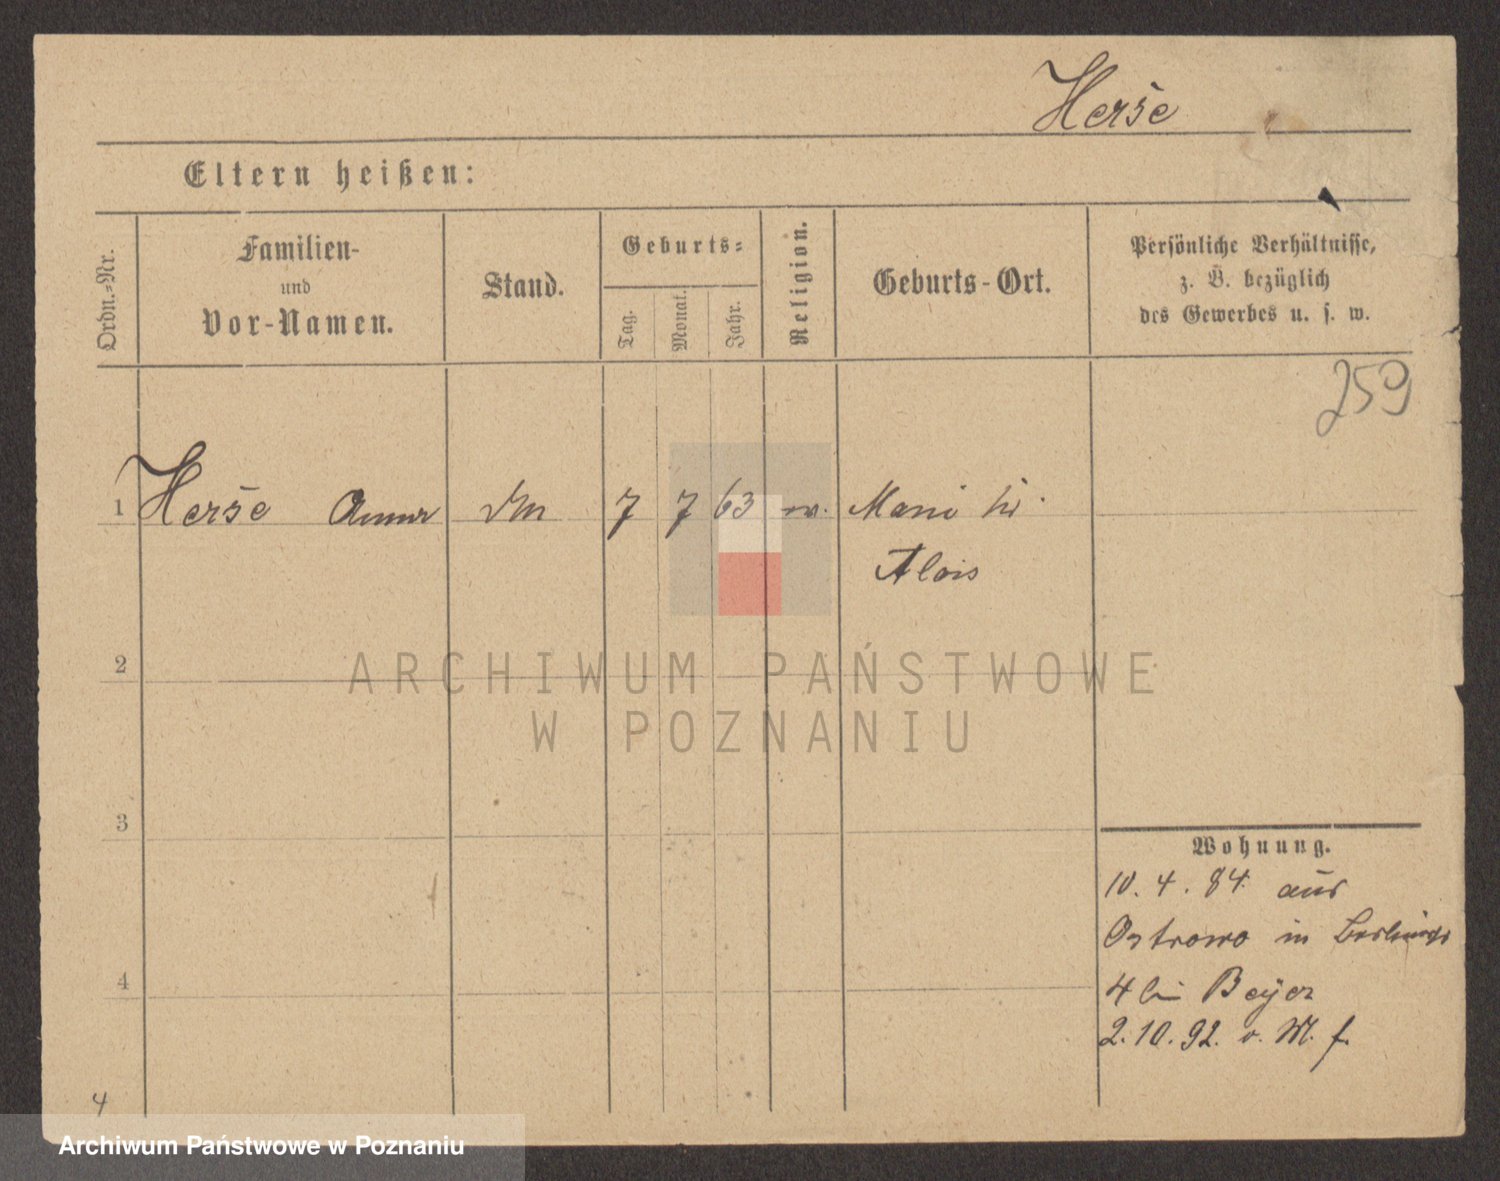 Herše
Eltern heißen:
Ordn.-Nr.
Familien-
und
Vor-Namen.
Stand.
Geburts-
Tag.
Monat.
Jahr.
Religion.
Geburts-Ort.
Persönliche Verhältnisse,
z. B. bezüglich
des Gewerbes u. s. w.
259
1 Herše 7 7 63
Alois
2
ARCHIWUM PAŃSTWOWE
W POZNANIU
3
Wohnung.
10. 4. 84 aus
Ostrowo in
4
4 bei Beyer
2. 10. 92. o. M. f.
4
Archiwum Państwowe w Poznaniu